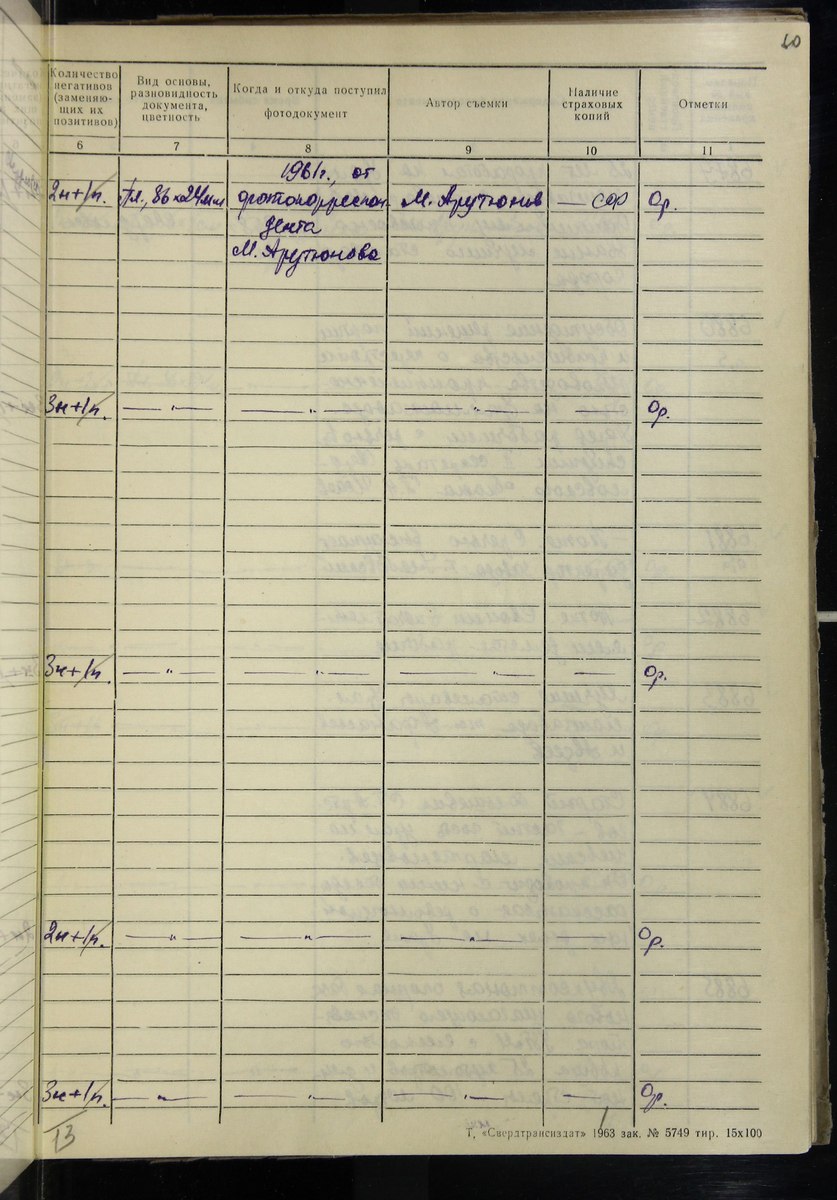 60
Количество негативов (заменяю-щих их позитивов)
Вид основы, разновидность документа, цветность
Когда и откуда поступил фотодокумент
Автор съемки
Наличие страховых копий
Отметки
6 7 8 9 10 11
1961г., от
2н+1п. пл., 36х24мм фотокорреспон М. Арутюнов — СОФ Ор.
дента
М. Арутюнова
3н+1п. —"— —"— —"— Ор.
3н+1п. —"— —"— —"— — Ор.
2н+1п. —"— —"— —"— Ор.
3н+1п. —"— —"— —"— — Ор.
13
Т, «Свердтрансиздат» 1963 зак. № 5749 тир. 15х100